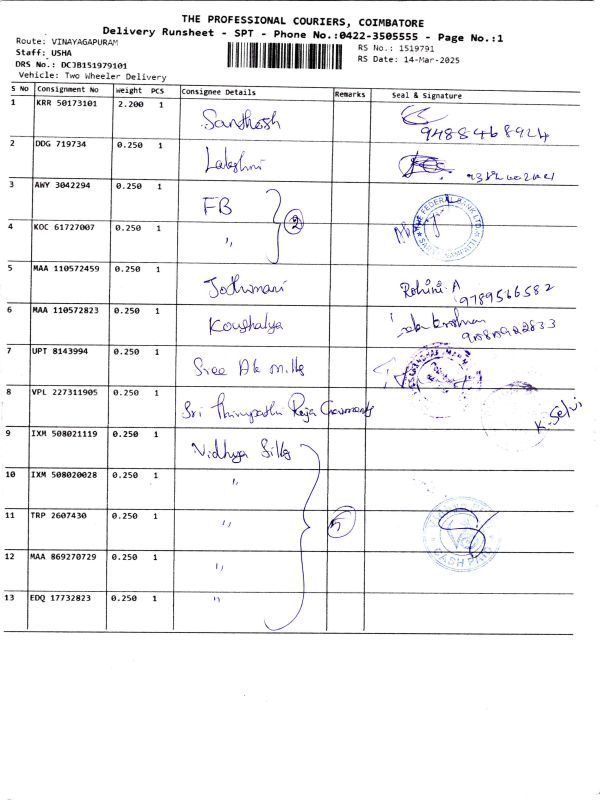 THE PROFESSIONAL COURIERS, COIMBATORE
Delivery Runsheet - SPT - Phone No.:0422-3505555 - Page No.:1
Route: VINAYAGAPURAM
RS No.: 1519791
Staff: USHA
RS Date: 14-Mar-2025
DRS No.: DCJB151979101
Vehicle: Two Wheeler Delivery
S No Consignment No Weight PCS Consignee Details Remarks Seal & Signature
1 KRR 50173101 2.200 1 Santhosh
9488468924
2 DDG 719734 0.250 1 Lakshmi
3 AWY 3042294 0.250 1 FB
2
THE FEDERAL BANK LTD
4 KOC 61727007 0.250 1 "
5 MAA 110572459 0.250 1 Jothimani Rohini.A
9789566582
6 MAA 110572823 0.250 1 Koushalya
7 UPT 8143994 0.250 1 Sree Ak Mills
8 VPL 227311905 0.250 1 Sri Thirupathi Raja
K. Selvi
9 IXM 508021119 0.250 1 Vidhya Silks
10 IXM 508020028 0.250 1 "
11 TRP 2607430 0.250 1 " 5
CASH PAID
12 MAA 869270729 0.250 1 "
13 EDQ 17732823 0.250 1 "